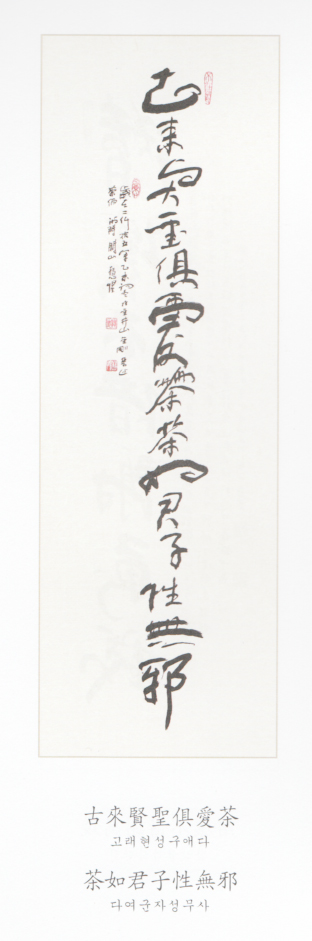 古来賢聖俱愛茶茶如君子性無邪
古來賢聖俱愛茶
고래현성구애다
茶如君子性無邪
다여군자성무사